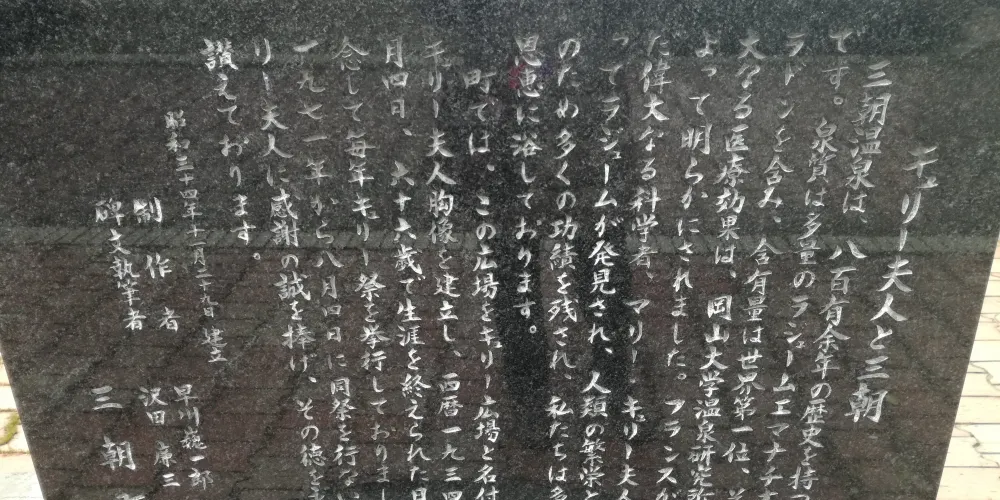 キュリー夫人と三朝
三朝温泉は、八百有余年の歴史を持つ
です。泉質は多量のラジュームエマナチオ
ラドンを含み、含有量は世界第一位、そ
大なる医療効果は、岡山大学温泉研究所
よって明らかにされました。フランスが
た偉大なる科学者、マリー・キュリー夫人
ってラジュームが発見され、人類の繁栄と
のため多くの功績を残され、私たちは多
恩恵に浴しております。
町では、この広場をキュリー広場と名付
キュリー夫人胸像を建立し、西暦一九三四
月四日、六十六歳で生涯を終えられた日
念して毎年キュリー祭を挙行しておりまし
一九七一年から八月四日に同祭を行ない
リー夫人に感謝の誠を捧げ、その徳を
讃えております。
昭和三十四年十一月二十九日建立
制作者 早川巍一郎
沢田廉三
碑文執筆者
三朝